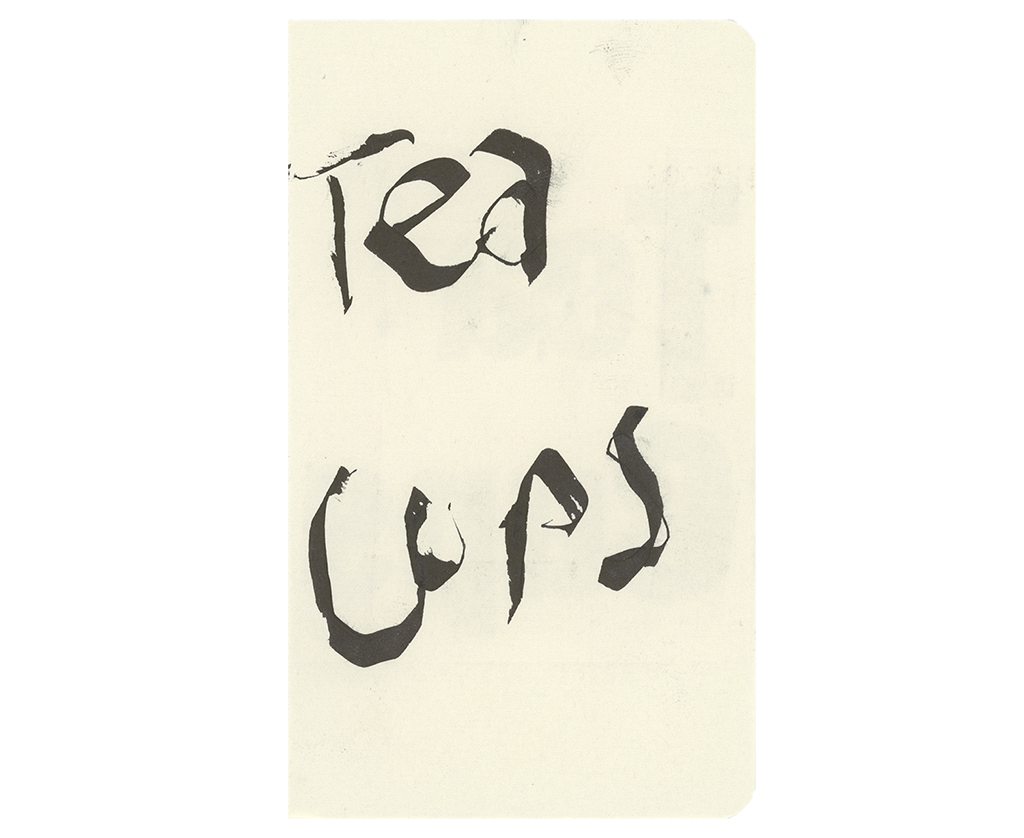 Tea
Cups